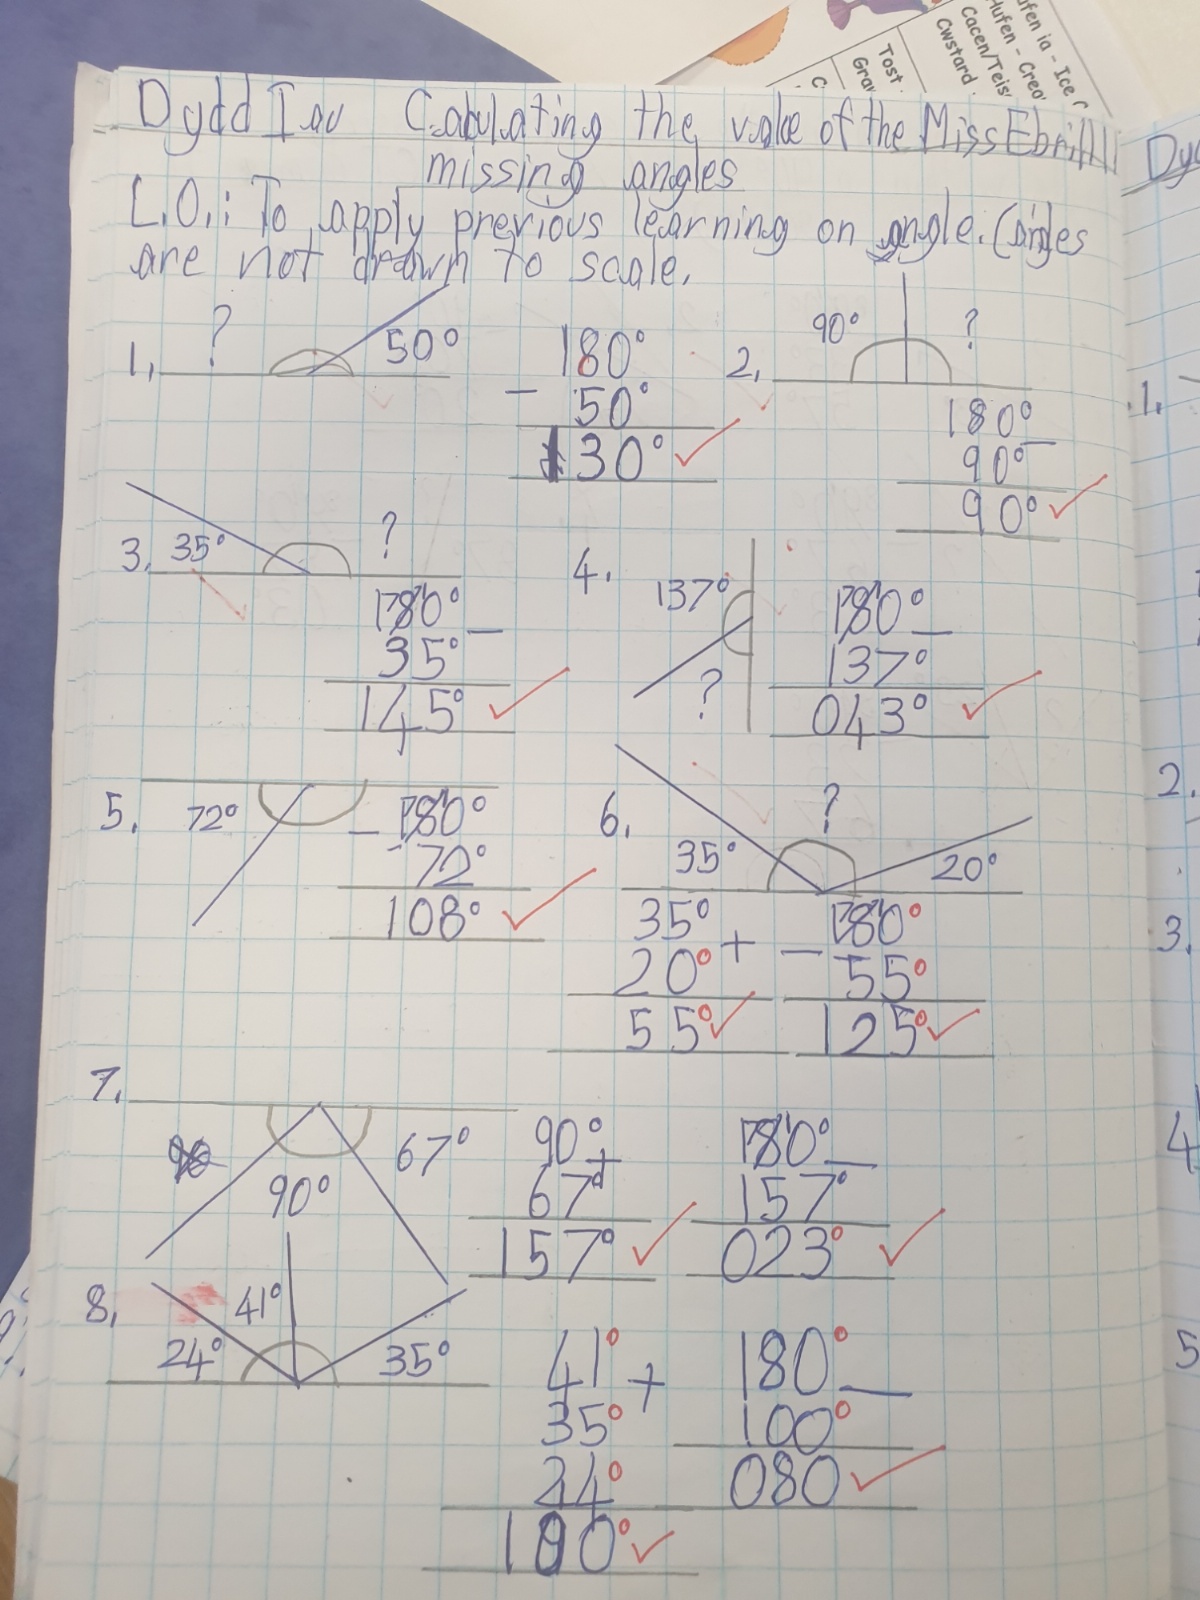 ufen ia - Ice
Hufen - Crea
Cacen/Teis
Cwstard
Tost
Gra
C
Dydd Iau Caculating the value of the Miss Ebrill
missing angles
L.O.: To apply previous learning on angle. (angles
are not drawn to scale.
1. ? 50°
180°
- 50°
130°
2. 90° ?
180°
90° -
90°
3. 35° ?
180°
35° -
145°
4. 137° ?
180°
137° -
043°
5. 72°
- 180°
72°
108°
6. 35° ? 20°
35°
20° +
55°
- 180°
55°
125°
7. 90° 67°
90°
67° +
157°
180°
157° -
023°
8. 24° 41° 35°
41°
35° +
24°
100°
180°
100° -
080
Dyd
1.
2.
3.
4
5